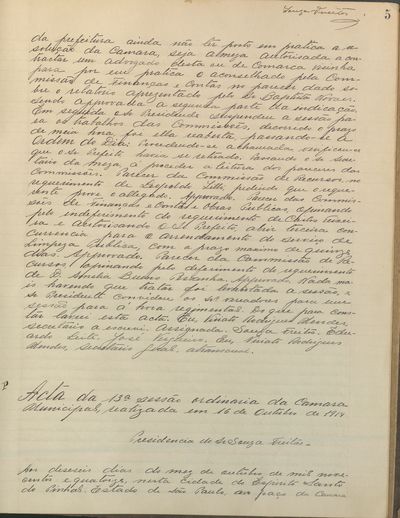 Souza Freitas
5
da prefeitura ainda não ter posto em pratica a re-
solução da Camara, seja a Meza autorisada a con-
tractar um advogado desta ou de Comarca visinha
para por em pratica o aconselhado pela Com-
missão de Finanças e Contas no parecer dado so-
bre o relatorio apresentado pelo Sr. Baptista Novaes.
Sendo approvada a segunda parte da indicação.
Em seguida o Sr. Presidente suspendeu a sessão pa-
ra os trabalhos das Commissões, decorrido o prazo
de meia hora, foi ella reaberta passando-se á
Ordem do Dia: Procedendo-se a chamada verificou-se
que o Sr. Prefeito havia se retirado, passando o Sr. Secre-
tario da Meza, a proceder a leitura dos pareceres das
Commissões. Parecer da Commissão de Recursos, no
requerimento de Leopoldo Lette pedindo que o reque-
rente prove o allegado. Approvado. Parecer das Commis-
sões de Finanças e Contas e Obras Publicas, opinando
pelo indeferimento do requerimento de Carlos
e autorisando o Sr. Prefeito abrir terceira con-
currencia para o arrendamento do serviço de
Limpeza Publica, com o prazo maximo de quinze
dias. Approvado. Parecer da Commissão de Re-
cursos, opinando pelo deferimento do requerimento
de D. Amelia Bueno Approvado. Nada ma-
is havendo que tratar foi levantada a sessão, e
o Sr. Presidente convidou os Srs. vereadores para uma
sessão para á hora regimental. Do que para cons-
tar lavrei esta acta. Eu, Renato Rodrigues Mendes,
secretario a escrevi. Assignado. Souza Freitas. Edu-
ardo Leite. José Eu, Renato Rodrigues
Mendes, Secretario
Acta da 13ª sessão ordinaria da Camara
Municipal, realizada em 16 de Outubro de 1914.
Presidencia do Sr. Souza Freitas.
Aos deseseis dias do mez de outubro de mil nove-
centos e quatorze, nesta cidade do Espirito Santo
do Pinhal, Estado de São Paulo, no paço da Camara